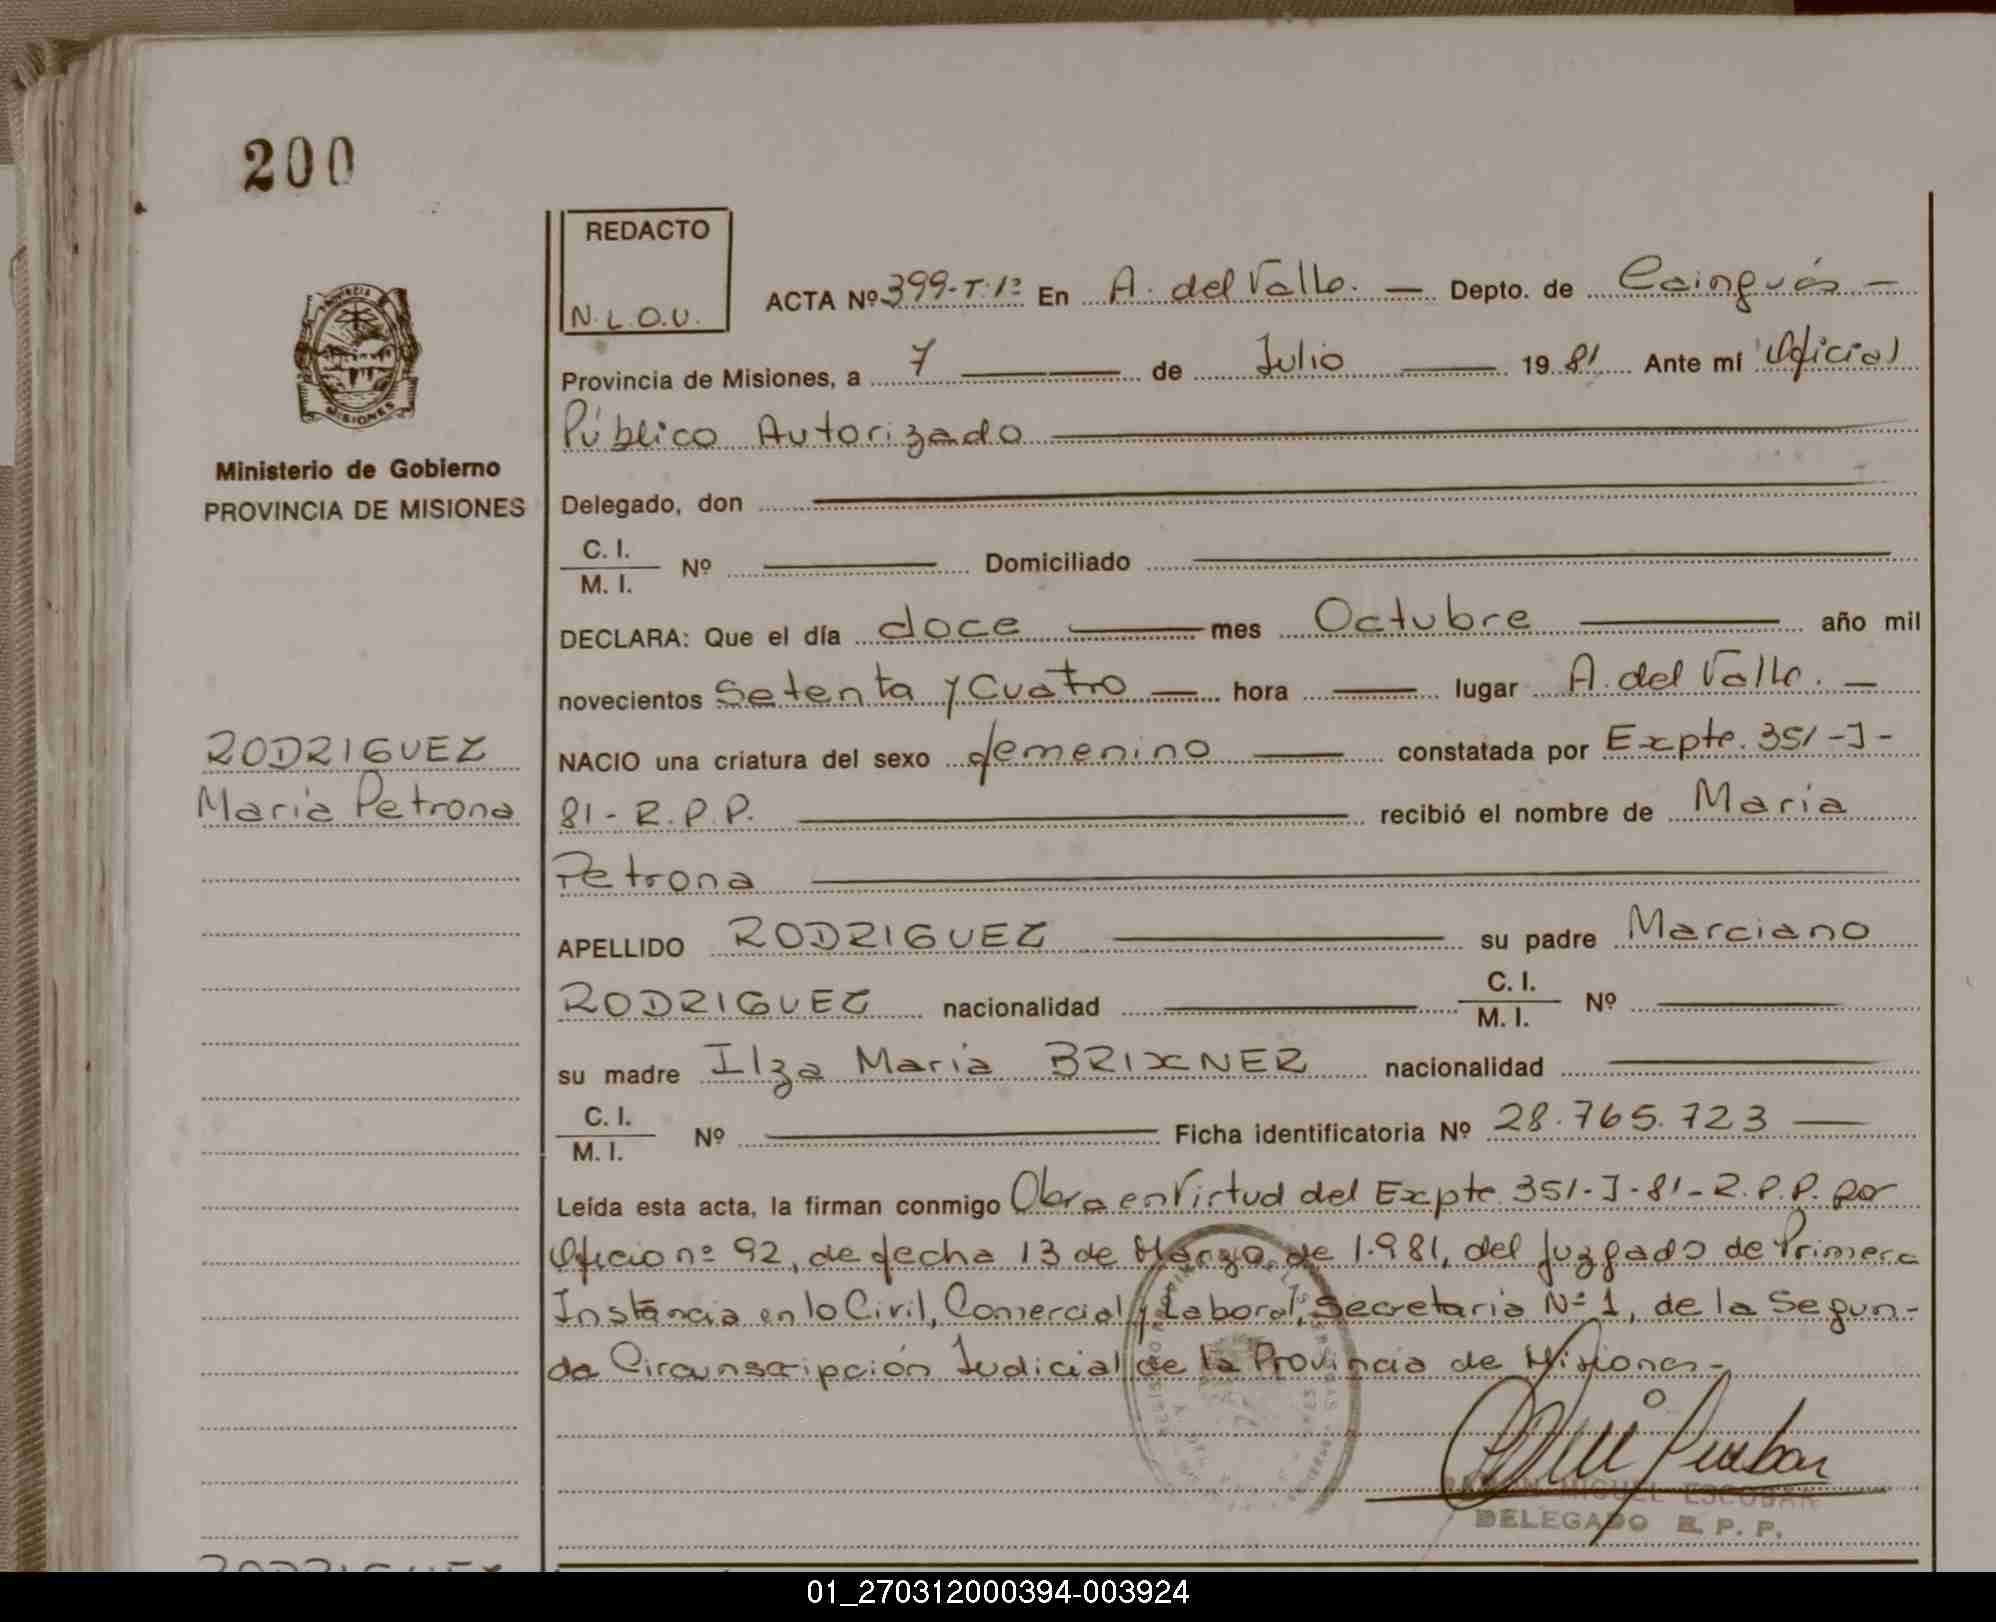 200
REDACTO
N.L.O.U.
ACTA Nº 399-T.1º En A. del Valle. — Depto. de Cainguás —
Provincia de Misiones, a 7 — de Julio — 1981 Ante mí Oficial
Público Autorizado
Delegado, don
C. I.
M. I. Nº Domiciliado
DECLARA: Que el día doce — mes Octubre — año mil
novecientos Setenta y Cuatro — hora — lugar A. del Valle. —
NACIO una criatura del sexo femenino — constatada por Expte. 351-J-
81-R.P.P. — recibió el nombre de María
Petrona
APELLIDO RODRIGUEZ — su padre Marciano
RODRIGUEZ nacionalidad — C. I.
M. I. Nº
su madre Ilza María BRIXNER nacionalidad
C. I.
M. I. Nº — Ficha identificatoria Nº 28.765.723 —
Leída esta acta, la firman conmigo Obra en Virtud del Expte 351-J-81-R.P.P. por
Oficio nº 92, de fecha 13 de Marzo de 1.981, del Juzgado de Primera
Instancia en lo Civil, Comercial y Laboral, Secretaria Nº 1, de la Segun-
da Circunscripción Judicial de la Provincia de Misiones-
MIGUEL ESCOBAR
DELEGADO R. P. P.
PROVINCIA
MISIONES
Ministerio de Gobierno
PROVINCIA DE MISIONES
RODRIGUEZ
María Petrona
RODRIGUEZ
01_270312000394-003924